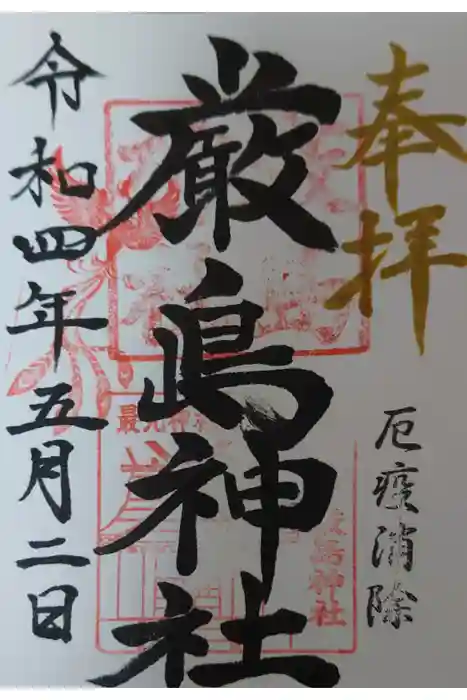 奉拝
厄疫消除
厳島神社
厳島神社
令和四年五月二日